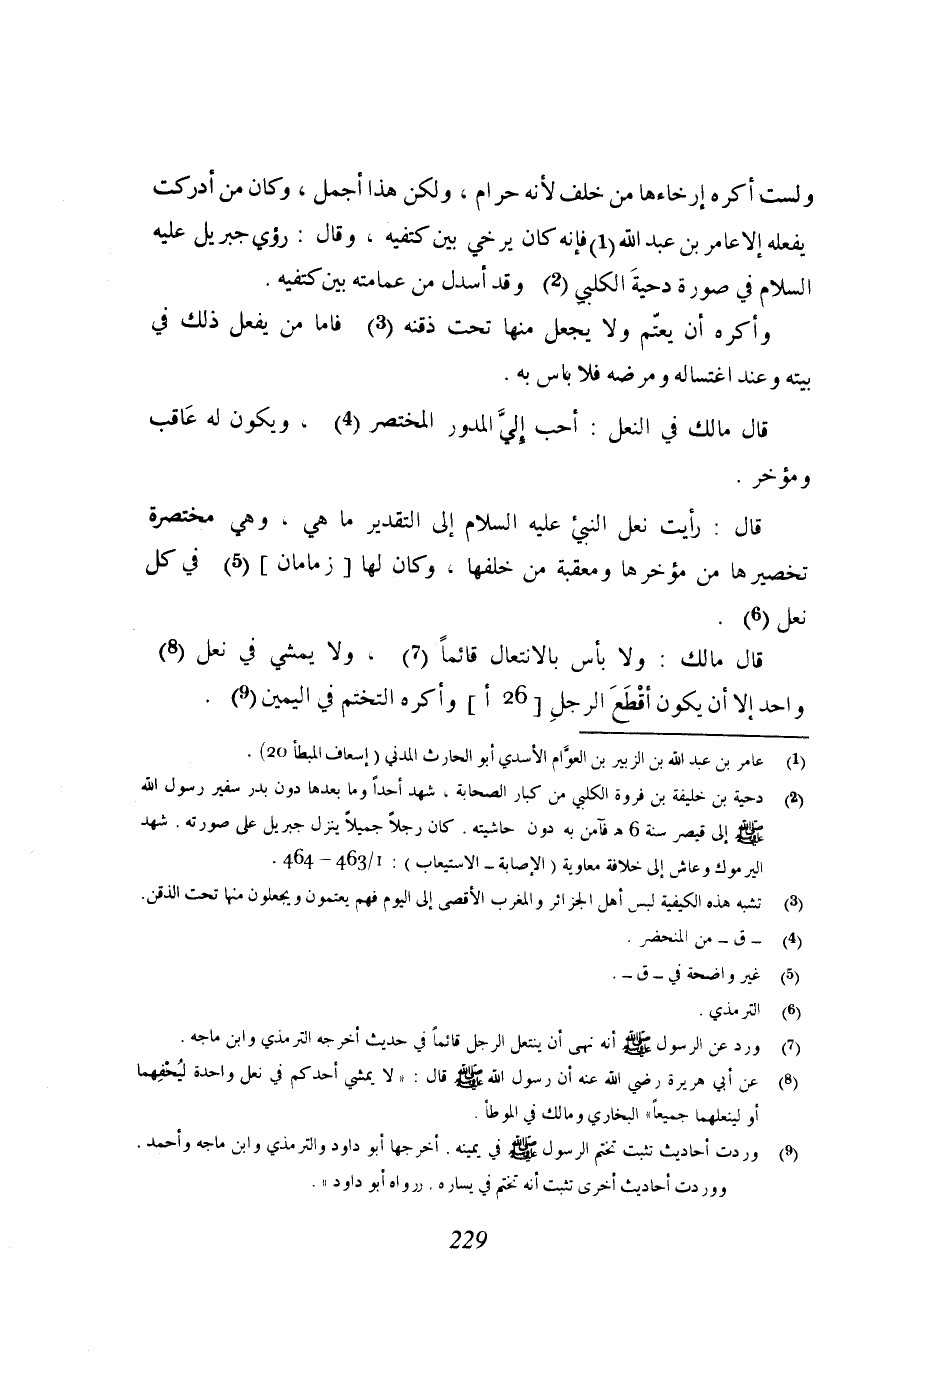 ولست أكره إرخاءها من خلف لأنه حرام ، ولكن هذا أجمل ، وكان من أدركت
يفعله إلا عامر بن عبد الله (1) فإنه كان يرخي بين كتفيه ، وقال : رؤي جبريل عليه
السلام في صورة دحيةَ الكلبي (2) وقد أسدل من عمامته بين كتفيه .
وأكره أن يعتّم ولا يجعل منها تحت ذقنه (3) فاما من يفعل ذلك في
بيته وعند اغتساله ومرضه فلا باس به .
قال مالك في النعل : أحب إليَّ المدور المختصر (4) ، ويكون له عَاقب
ومؤخر .
قال : رأيت نعل النبيْ عليه السلام إلى التقدير ما هي ، وهي مختصرة
تخصيرها من مؤخرها ومعقبة من خلفها ، وكان لها [ زمامان ] (5) في كل
نعل (6) .
قال مالك : ولا بأس بالانتعال قائماً (7) ، ولا يمشي في نعل (8)
واحد إلا أن يكون أقْطَعَ الرجلِ [ 26 أ ] وأكره التختم في اليمين (9) .
(1) عامر بن عبد الله بن الزبير بن العوَّام الأسدي أبو الحارث المدني ( إسعاف المبطأ 20) .
(2) دحية بن خليفة بن فروة الكلبي من كبار الصحابة ، شهد أحداً وما بعدها دون بدر سفير رسول الله
ﷺ إلى قيصر سنة 6 هـ فآمن به دون حاشيته . كان رجلاً جميلاً ينزل جبريل على صورته . شهد
اليرموك وعاش إلى خلافة معاوية ( الإصابة ــ الاستيعاب ) : 463/1 – 464 .
(3) تشبه هذه الكيفية لبس أهل الجزائر والمغرب الأقصى إلى اليوم فهم يعتمون ويجعلون منها تحت الذقن.
(4) ــ ق ــ من المنحضر .
(5) غير واضحة في ــ ق ــ .
(6) الترمذي .
(7) ورد عن الرسول ﷺ أنه نهى أن ينتعل الرجل قائماً في حديث أخرجه الترمذي وابن ماجه .
(8) عن أبي هريرة رضي الله عنه أن رسول الله ﷺ قال : « لا يمشي أحدكم في نعل واحدة ليُحْفِهما
أو لينعلهما جميعاً» البخاري ومالك في الموطأ .
(9) وردت أحاديث تثبت تختم الرسول ﷺ في يمينه . أخرجها أبو داود والترمذي وابن ماجه وأحمد .
ووردت أحاديث أخرى تثبت أنه تختم في يساره . ررواه أبو داود » .
229